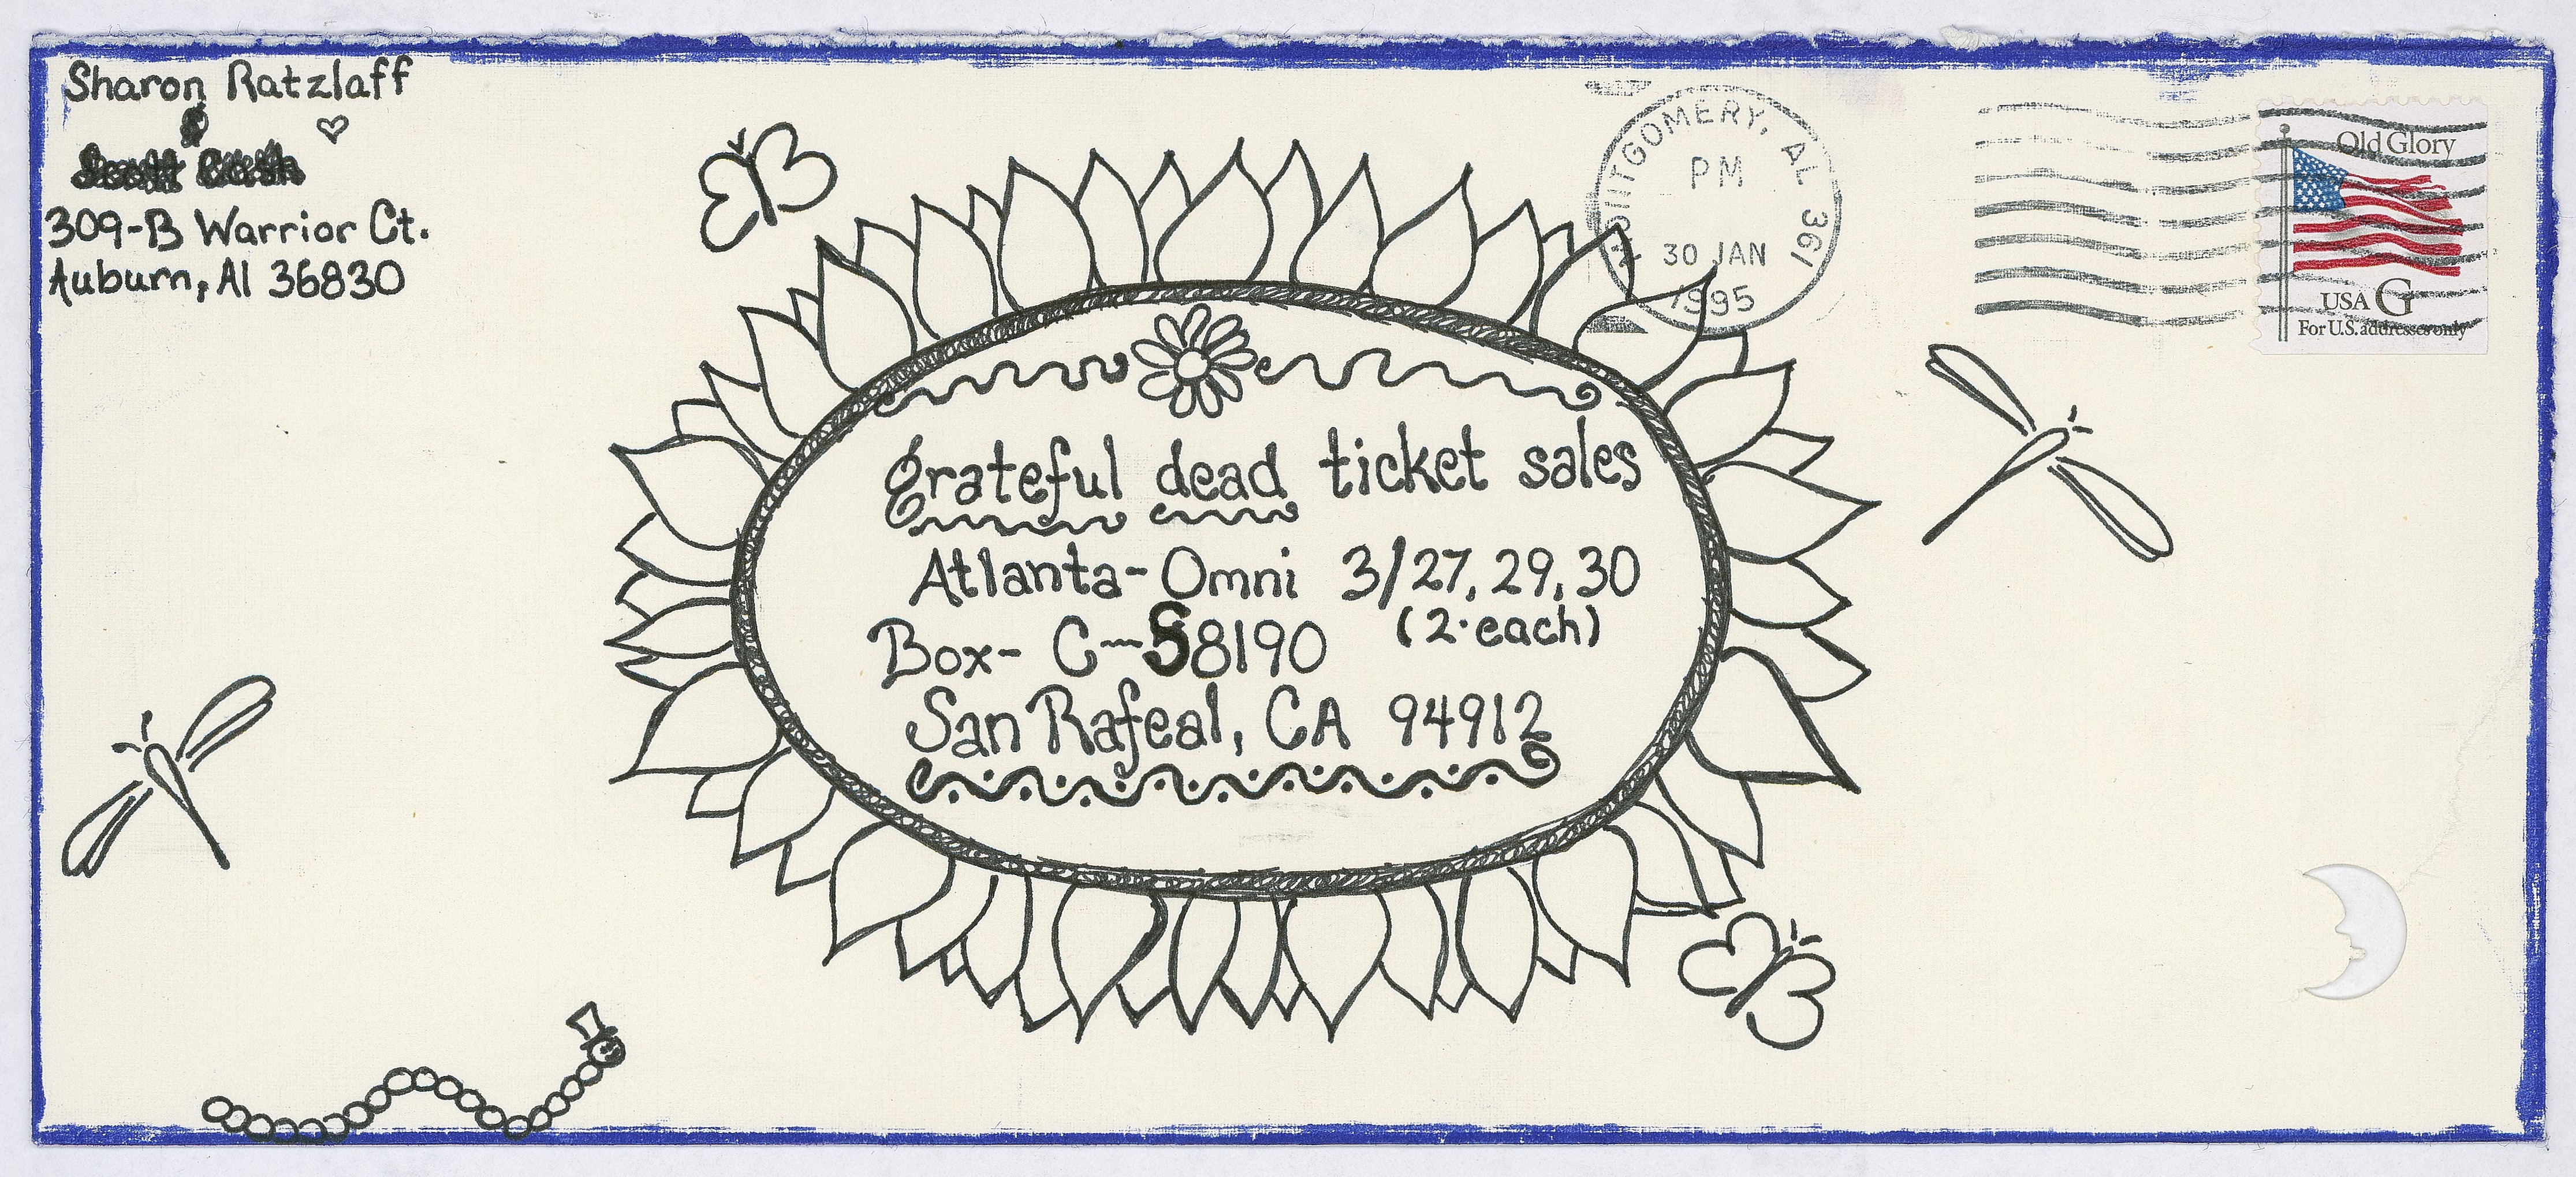 Sharon Ratzlaff
309-B Warrior Ct.
Auburn, Al 36830
MONTGOMERY, AL 361
PM
30 JAN
1995
Old Glory
USA G
For U.S. addresses only
grateful dead ticket sales
Atlanta-Omni 3/27, 29, 30
(2·each)
Box- C-S8190
San Rafeal, CA 94912